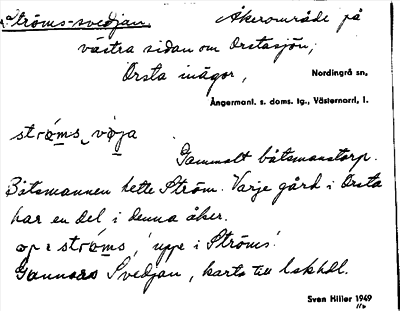 Ströms-svedjan. Åkerområde på
västra sidan om Orstasjön,
Orsta inägor, Nordingrå sn,
Ångermanl. s. doms. tg., Västernorrl. l.
stroms
Gammalt båtsmanstorp.
Båtsmannen hette Ström. Varje gård i Orsta
har en del i denna åker.
stroms, 'uppe i Ströms'.
Svedjan, karta till
Sven Hiller 1949